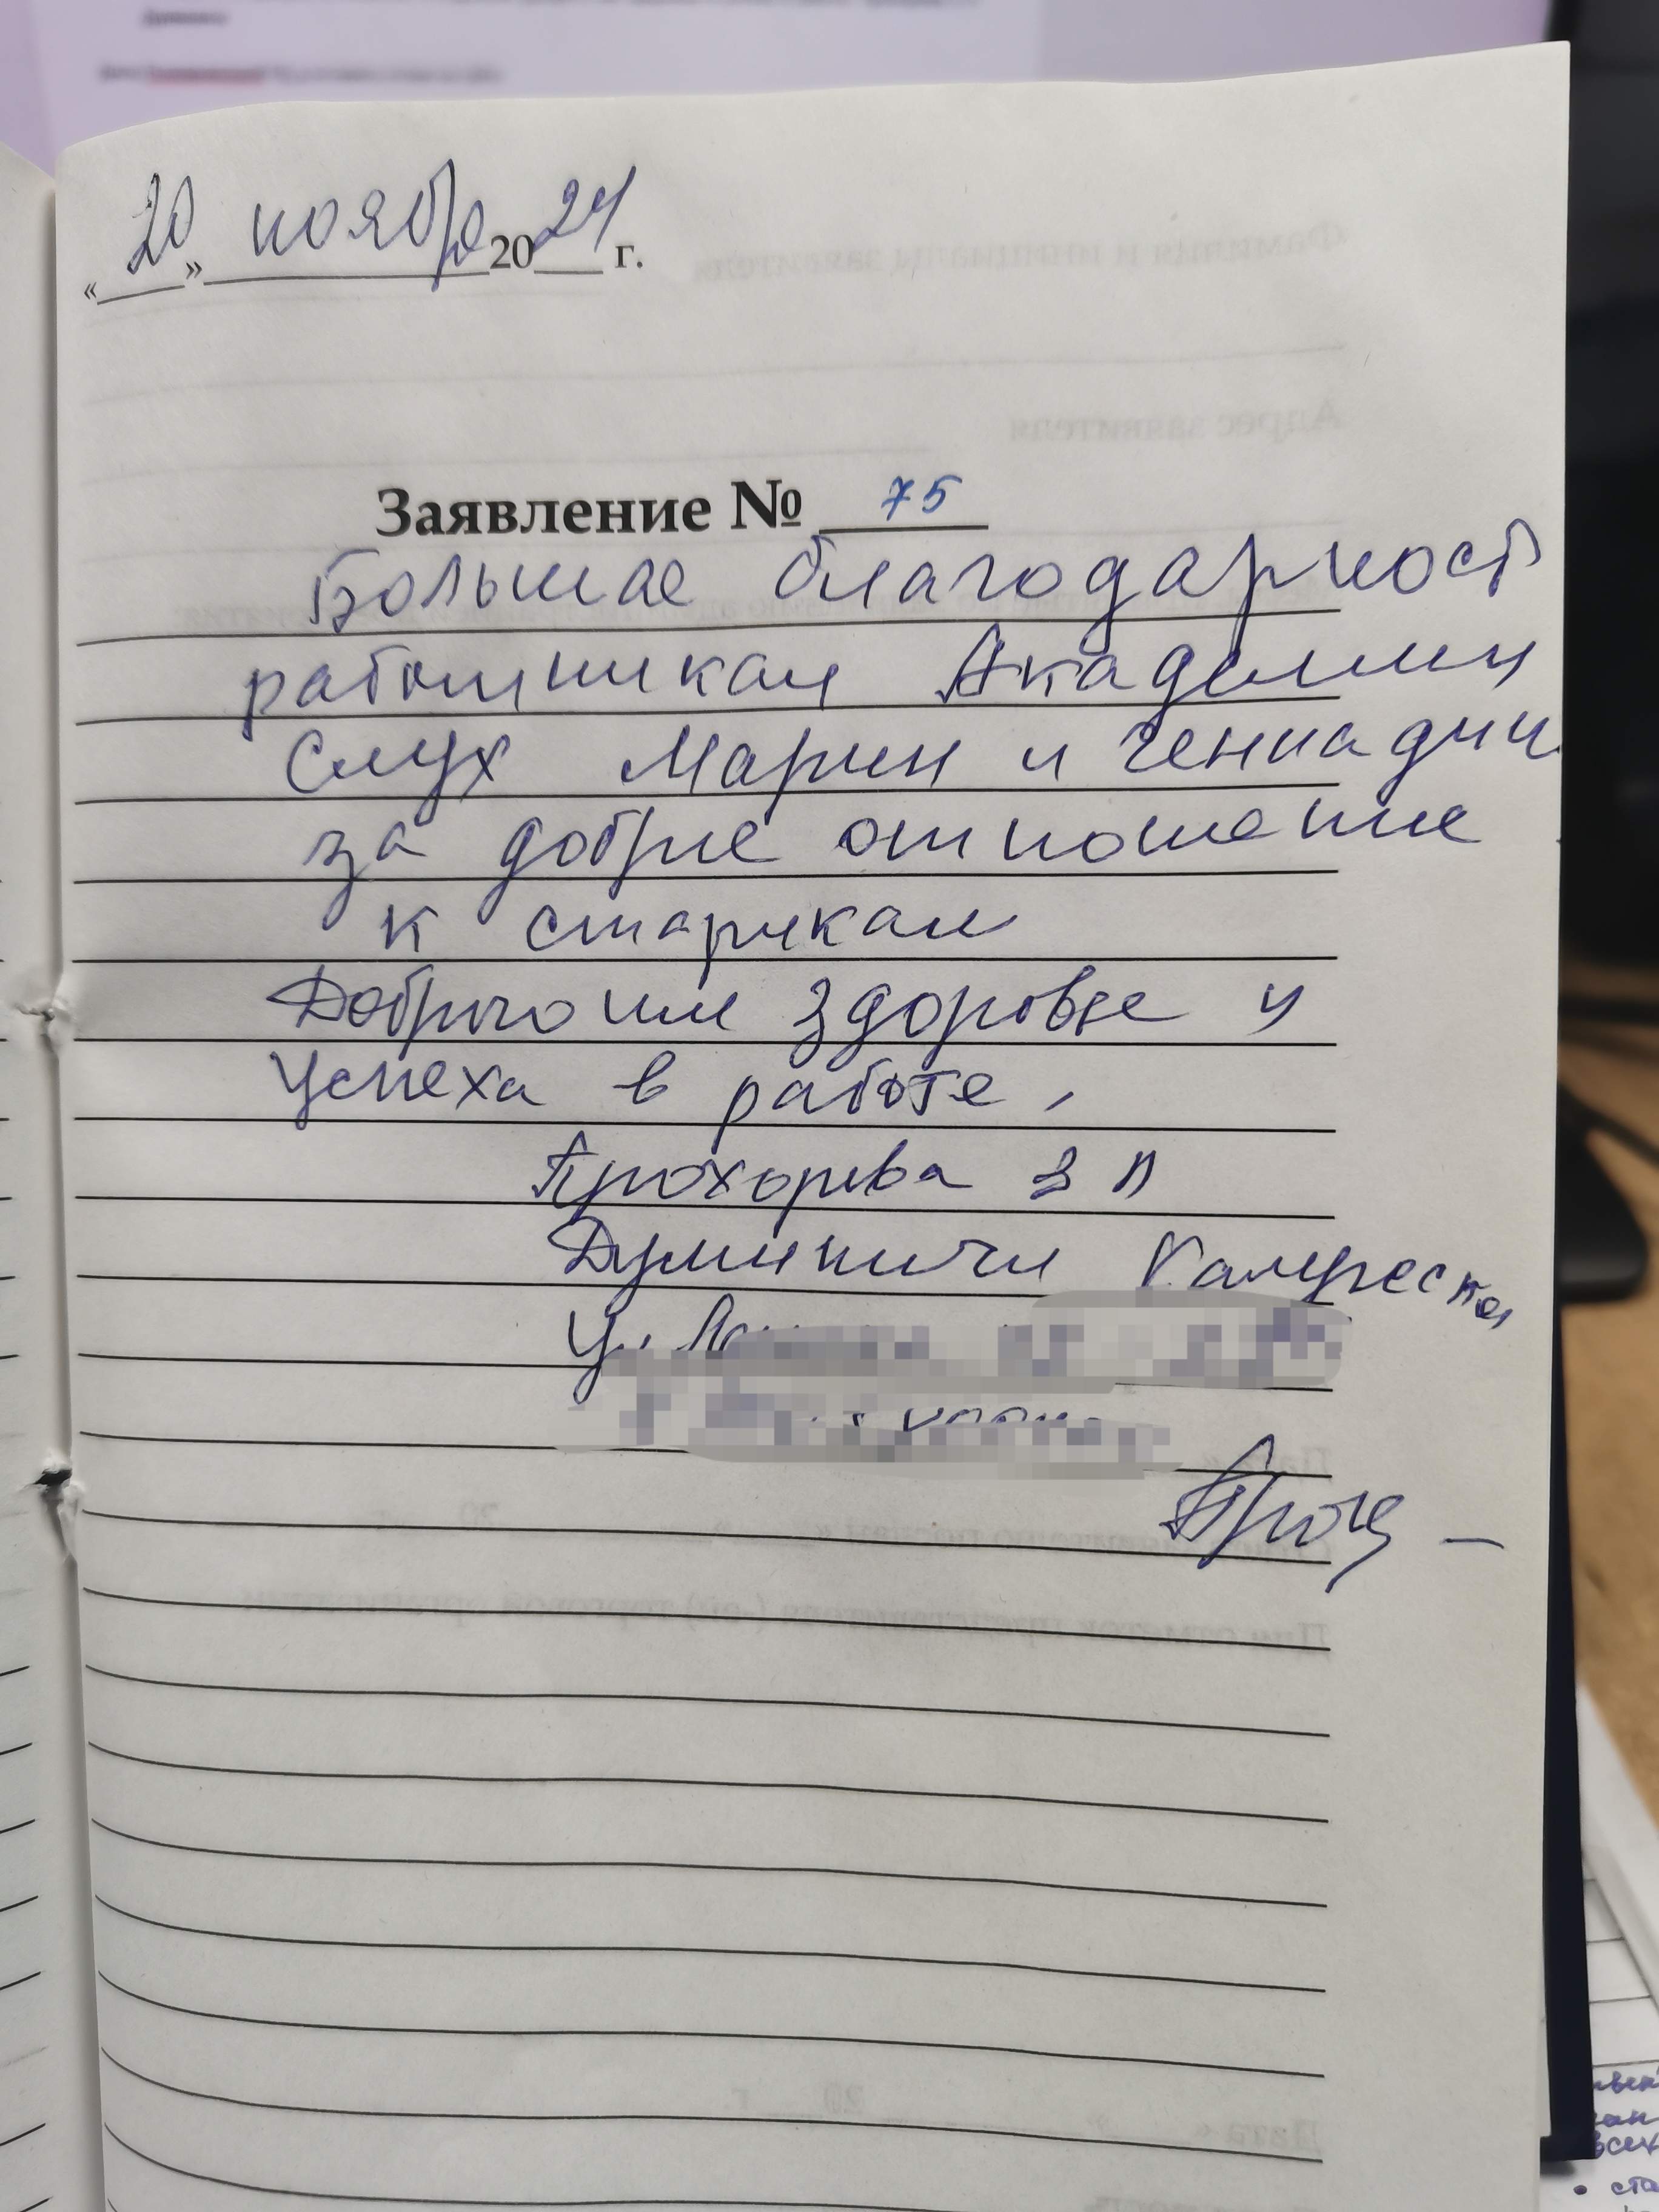 «20» ноября 2024 г.
Заявление № 75
Большае благодарност
работникам Академии
Слух Марии и Геннадии
за добрые отношение
к старикам
Доброго им здоровье и
Успеха в работе,
Прохорова З П
Думиничи Калужской
Ул